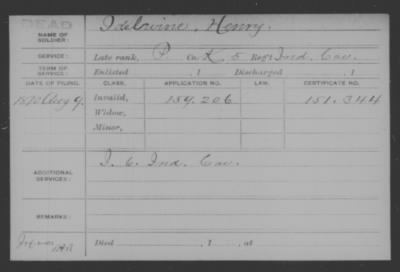 DEAD
NAME OF SOLDIER: Idelwine, Henry.
SERVICE: Late rank, P Co. K, 5 Reg't Ind. Cav.
TERM OF SERVICE: Enlisted , 1 Discharged , 1
DATE OF FILING. CLASS. APPLICATION NO. LAW. CERTIFICATE NO.
1870 Aug 9. Invalid, 159.206 151.344
Widow,
Minor,
ADDITIONAL SERVICES: I. 6. Ind. Cav.
REMARKS:
Died , 1 , at